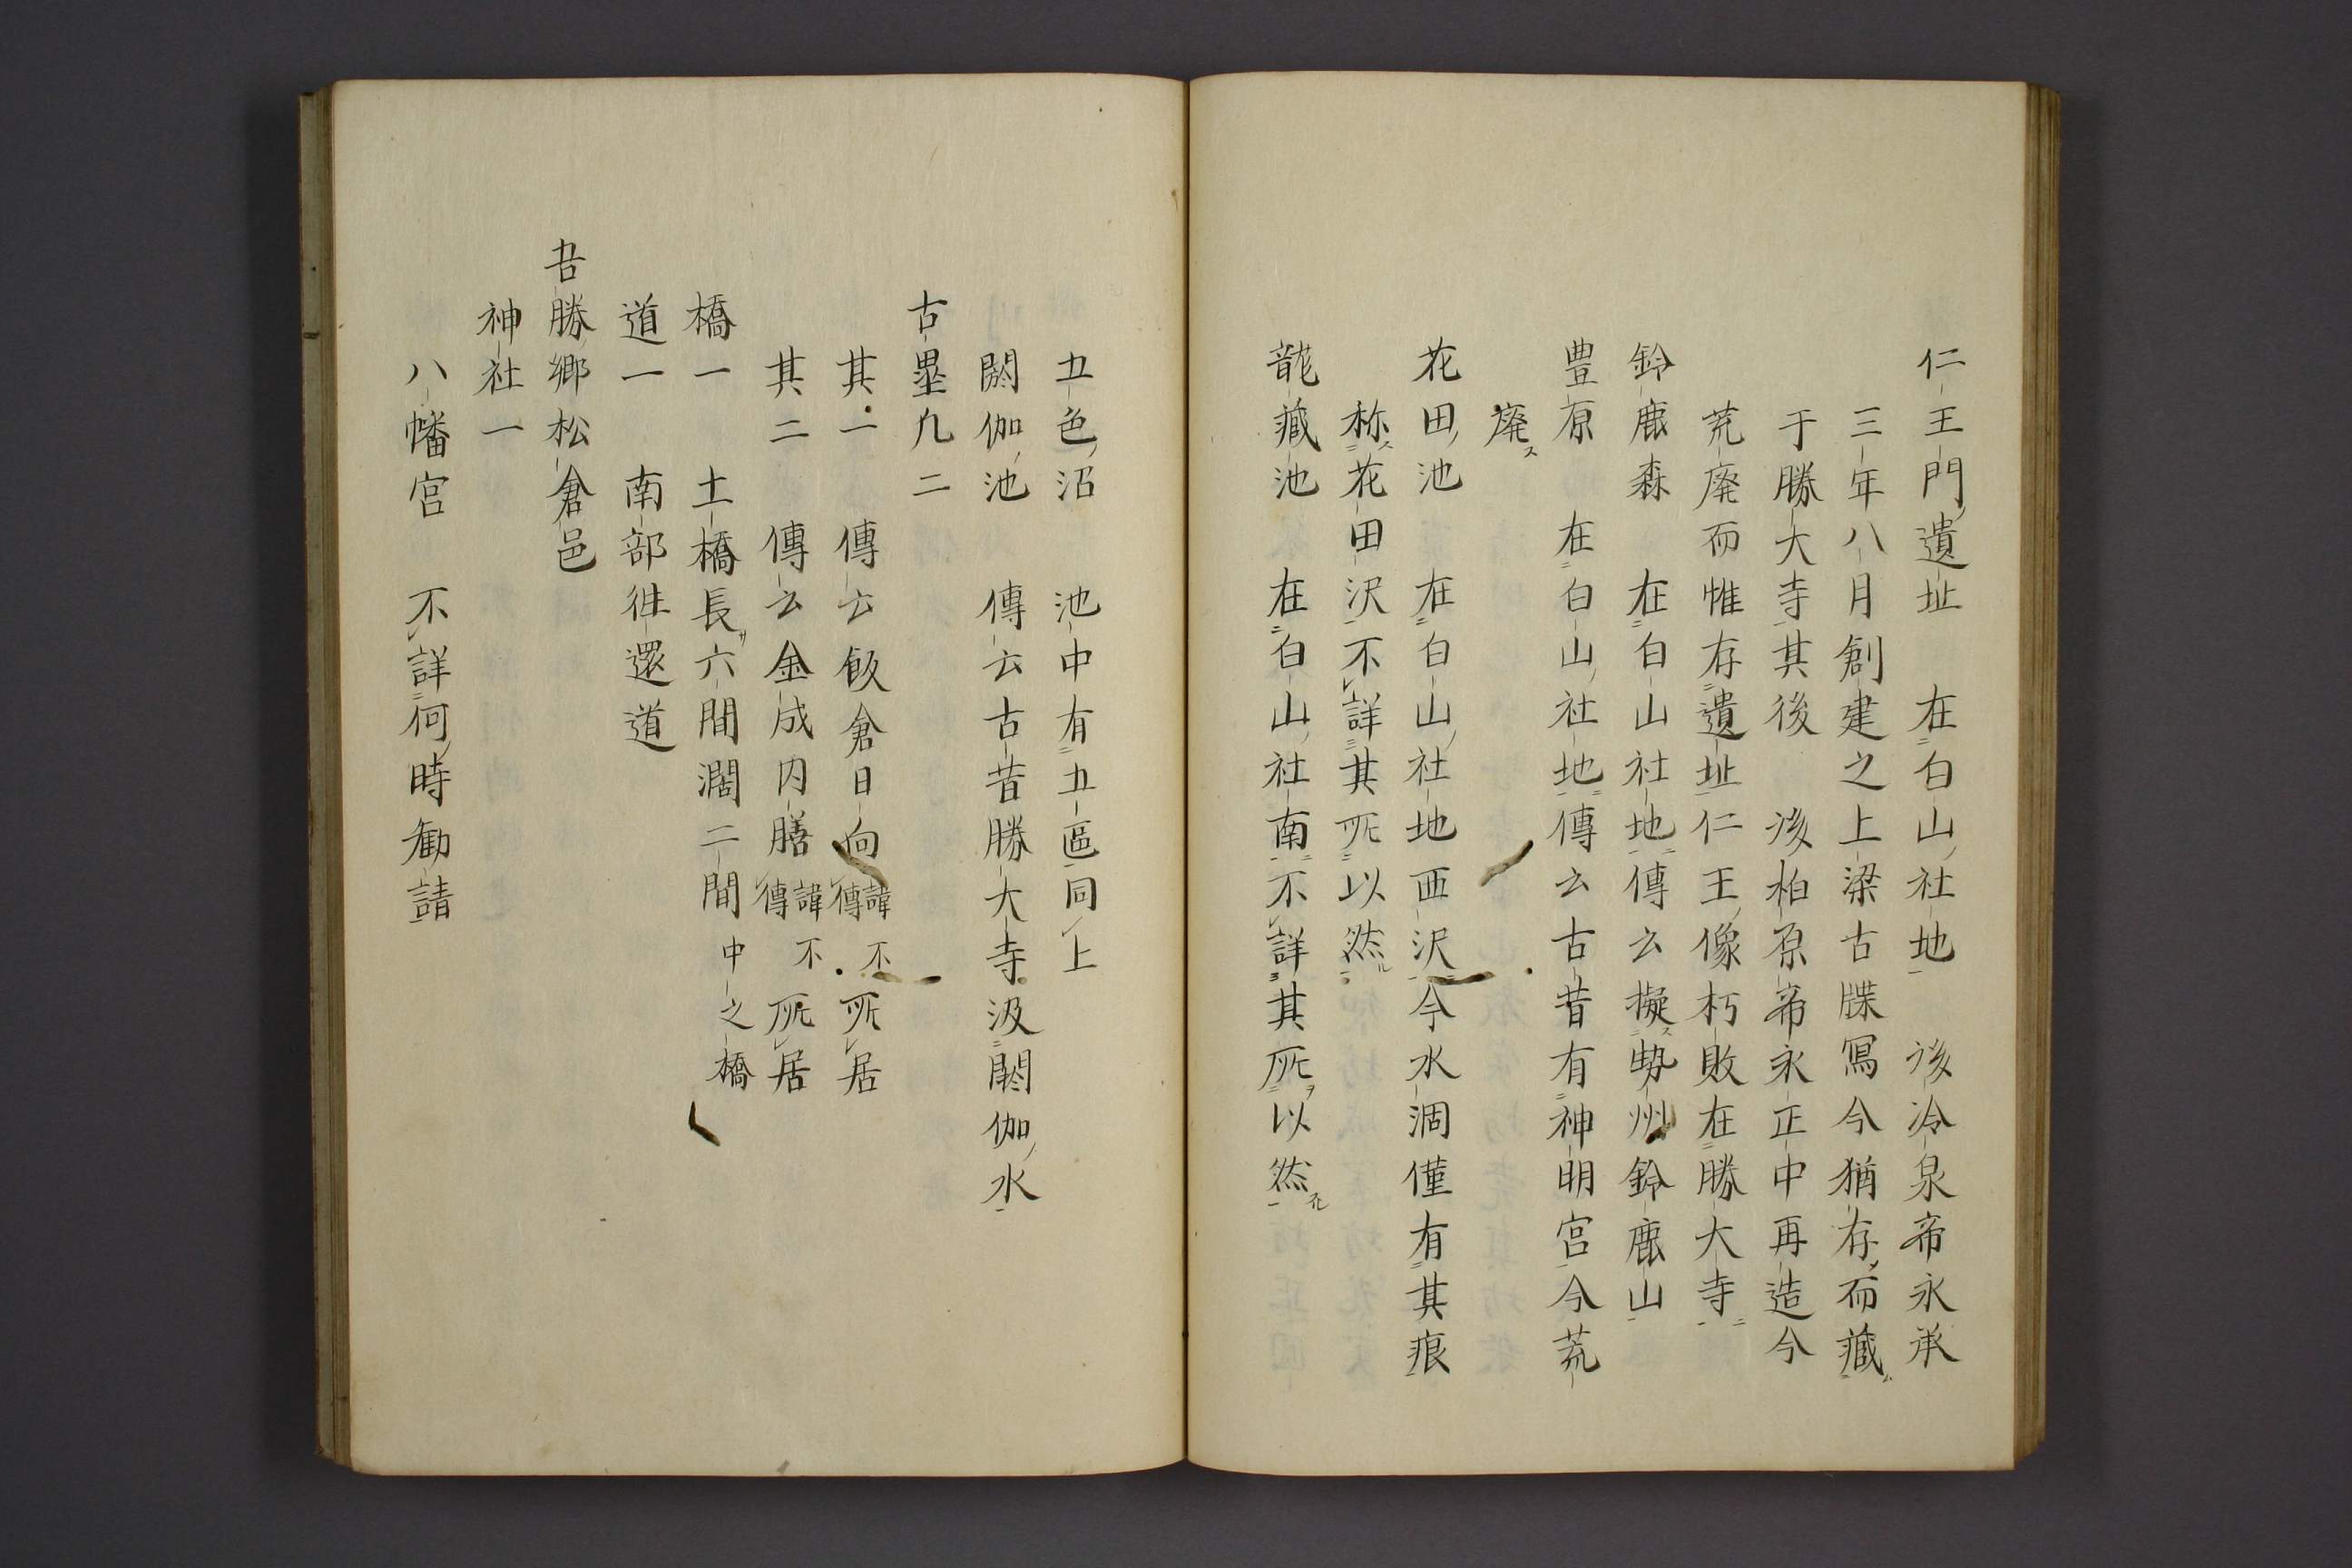 仁王門遺址　在白山社地　後冷泉帝永承
三年八月創建之上梁古牒冩今猶存而藏
于勝大寺其後　後柏原帝永正中再造今
荒廃而惟存遺址仁王像朽敗在勝大寺
鈴鹿森　在白山社地傳云擬勢州鈴鹿山
豊原　在白山社地傳云古昔有神明宮今荒
廃ス
花田池　在白山社地西沢今水涸僅有其痕
称花田沢不詳其所以然
龍藏池　在白山社南不詳其所以然
五色沼　池中有五區同上
閼伽池　傳云古昔勝大寺汲閼伽水
古壘凡二
其一　傳云飯倉日向諱不傳所居
其二　傳云金成内膳諱不傳所居
橋一　土橋長六間濶二間中之橋
道一　南部往還道
吾勝郷松倉邑
神社一
八幡宮　不詳何時勧請